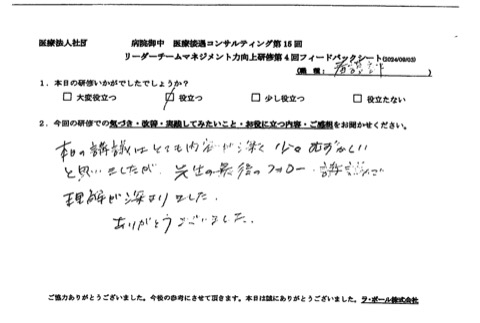 医療法人社団　　　病院御中　医療接遇コンサルティング第15回
リーダーチームマネジメント力向上研修第4回フィードバックシート(2024/09/03)
(職種：看護師)
1．本日の研修いかがでしたでしょうか？
□ 大変役立つ　☑ 役立つ　□ 少し役立つ　□ 役立たない
2．今回の研修での気づき・改善・実践してみたいこと・お役に立つ内容・ご感想をお聞かせください。
本日の講議はとても内容が深く 少々むずかしい
と思いましたが、先生の最後のフォロー、講議で
理解が深まりました。
ありがとうございました。
ご協力ありがとうございました。今後の参考にさせて頂きます。本日は誠にありがとうございました。ラ・ポール株式会社